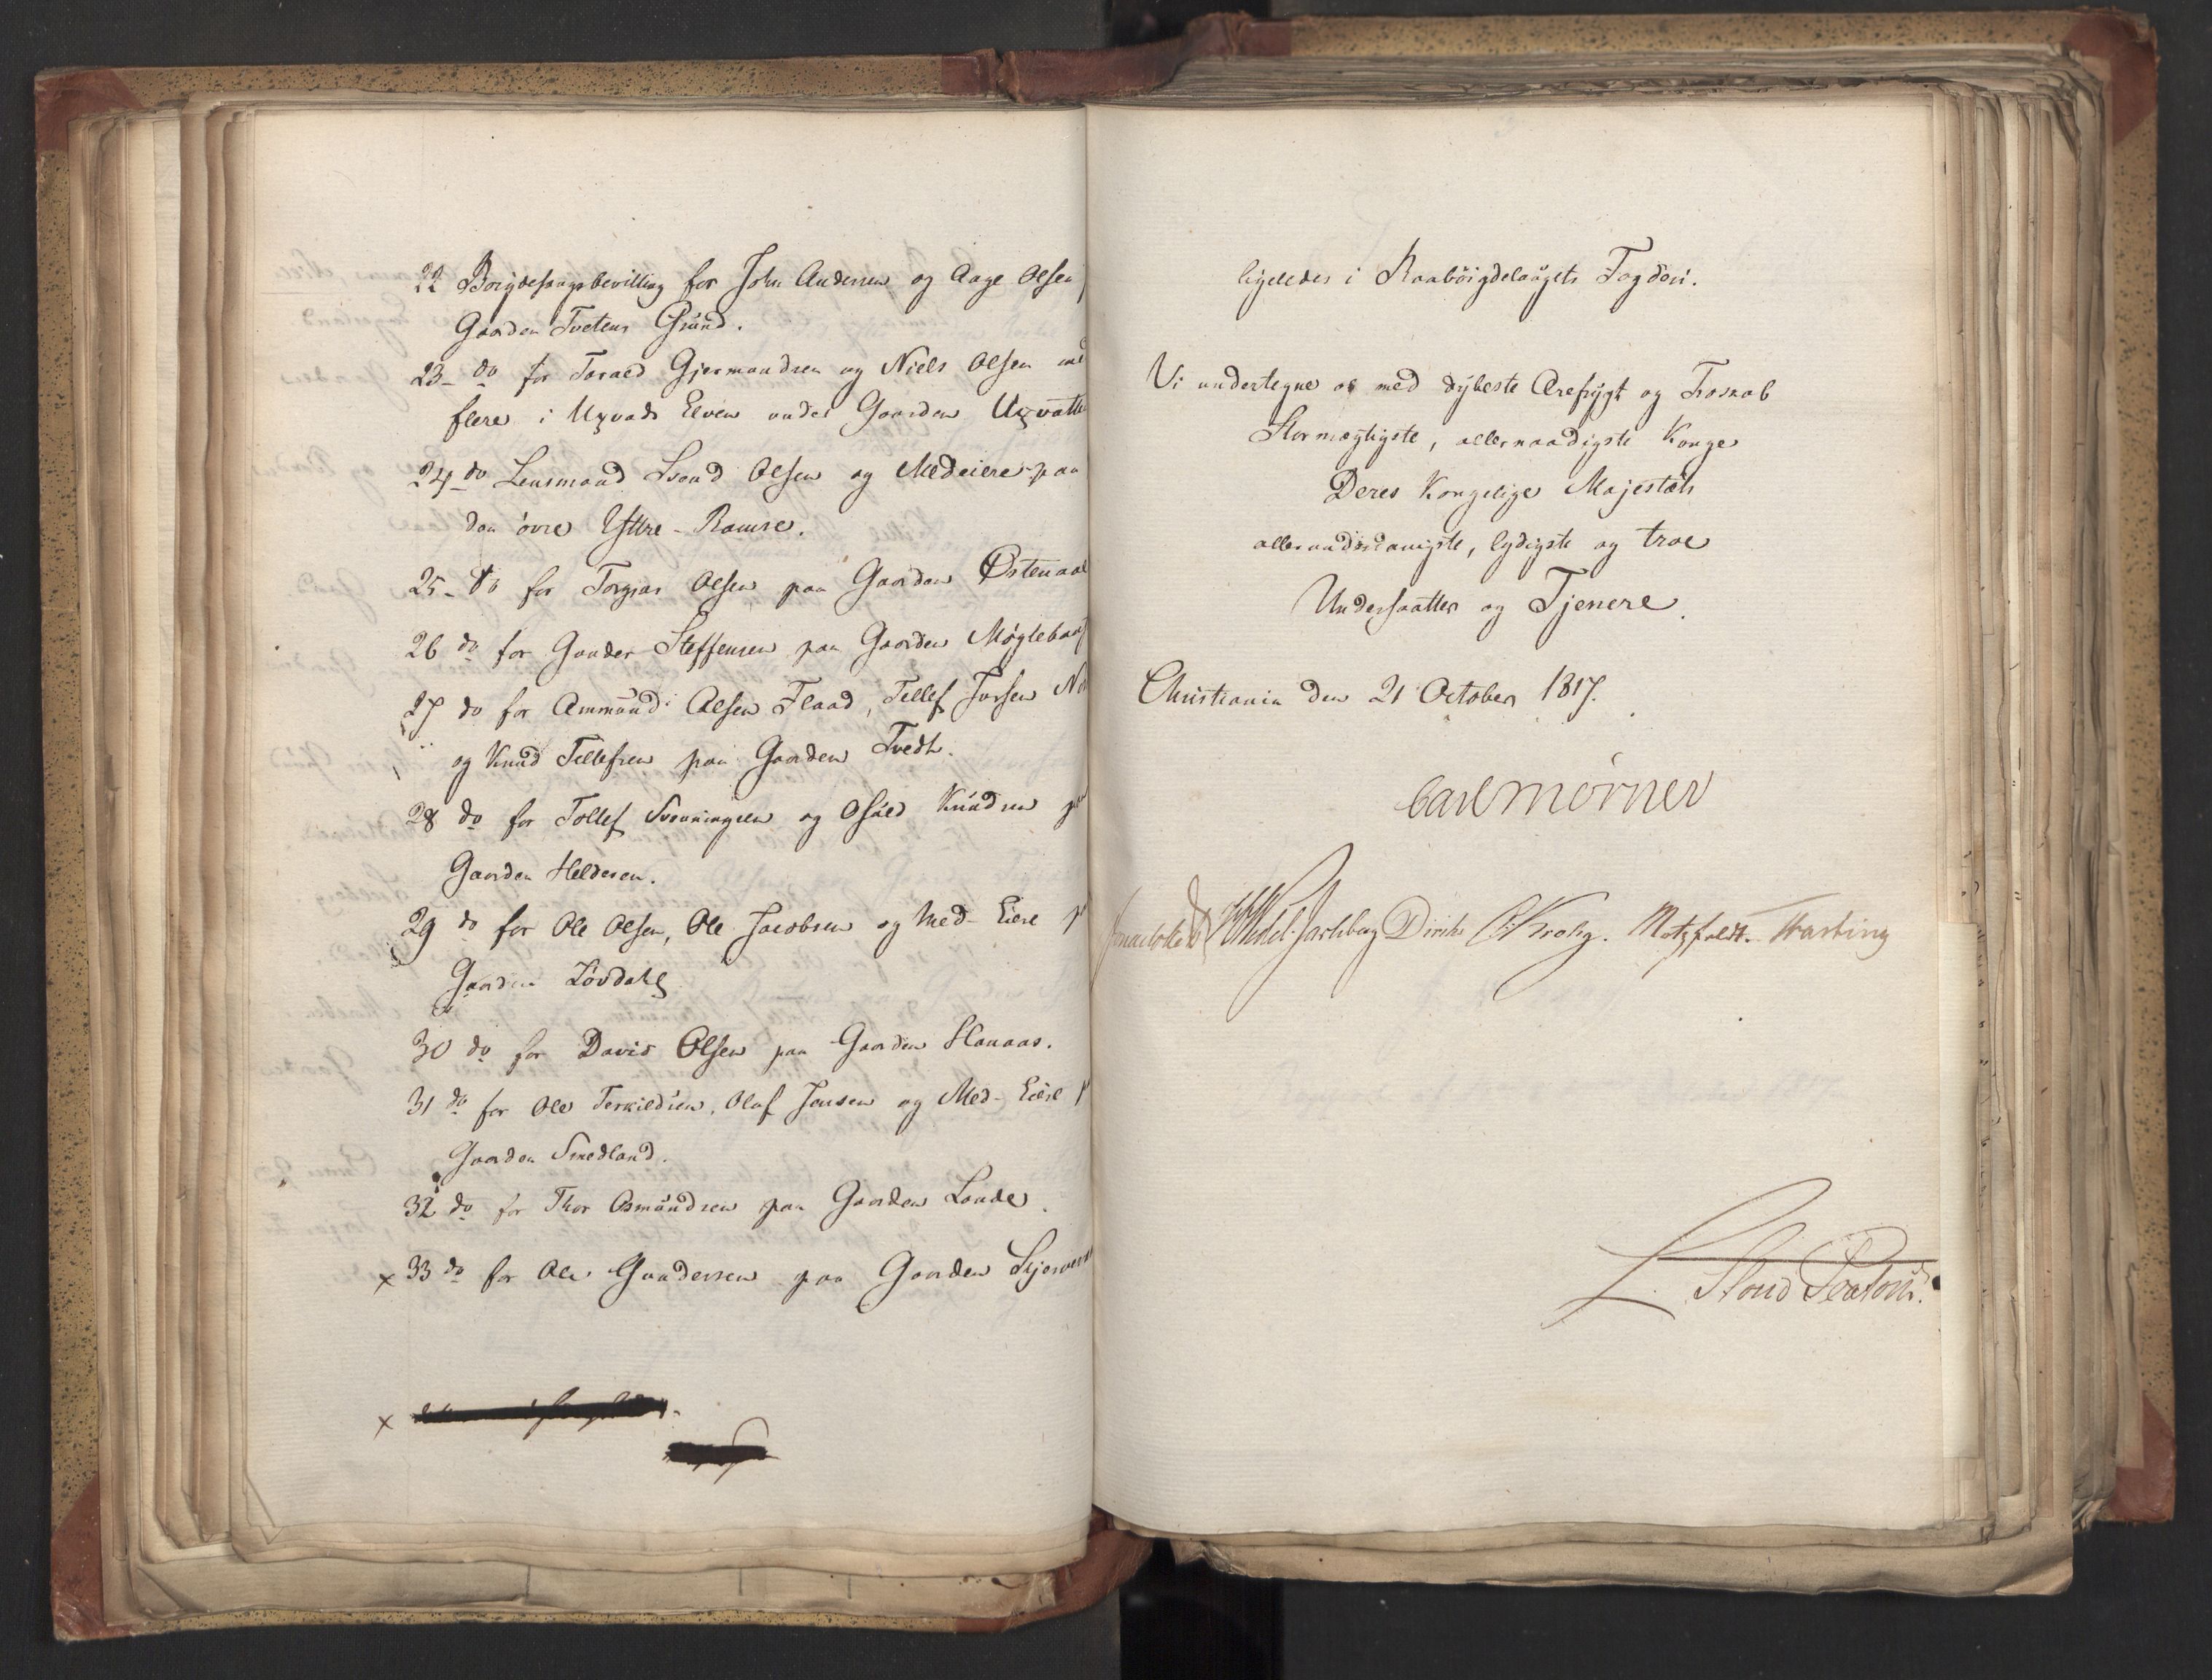 22 Böigdesaugsbevilling for John Andersen og Aage Olsen
Gaarden Tvetens Grund.
23 - do for Torald Gjermundsen og Niels Olsen med
flere i Uqvads Elven under Gaarden Uqvatt
24 do Lensmand Svend Olsen og Medeiere paa
den övre Yttre - Ramse.
25 - do for Torgias Olsen paa Gaarden Østenaa
26 do for Gunder Steffensen paa Gaarden Møglebaa
27 do for Ammund Olsen Flaad, Tellef
og Knud Tellefsen paa Gaarden Tvedt.
28 do for Tollef Svenningsen og Osuld Knudsen
Gaarden Heldesen.
29 do for Ole Olsen, Ole Jacobsen og Med-Eiere
Gaarden Løvdahl
30 do for David Olsen paa Gaarden Hanaas.
31 do for Ole Terkildsen, Oluf Jensen og Med-Eiere
Gaarden Smedland.
32 do for Thor Osmundsen paa Gaarden Lande.
x 33 do for Ole Gundersen paa Gaarden
x
ligeledes i Raaböigdelaugets Fogderi.
Vi undertegne os med dybeste Ærefrygt og Troskab
Stormægtigste, allernaadigste Konge
Deres Kongelige Majestæts
allerunderdanigste, lydigste og troe
Undersaatter og Tjenere.
Christiania den 21 October 1817.
Carl Mörner
Wedel-Jarlsberg Diriks C. Krohg. Motzfeldt. Hasting
Stoud Platou.